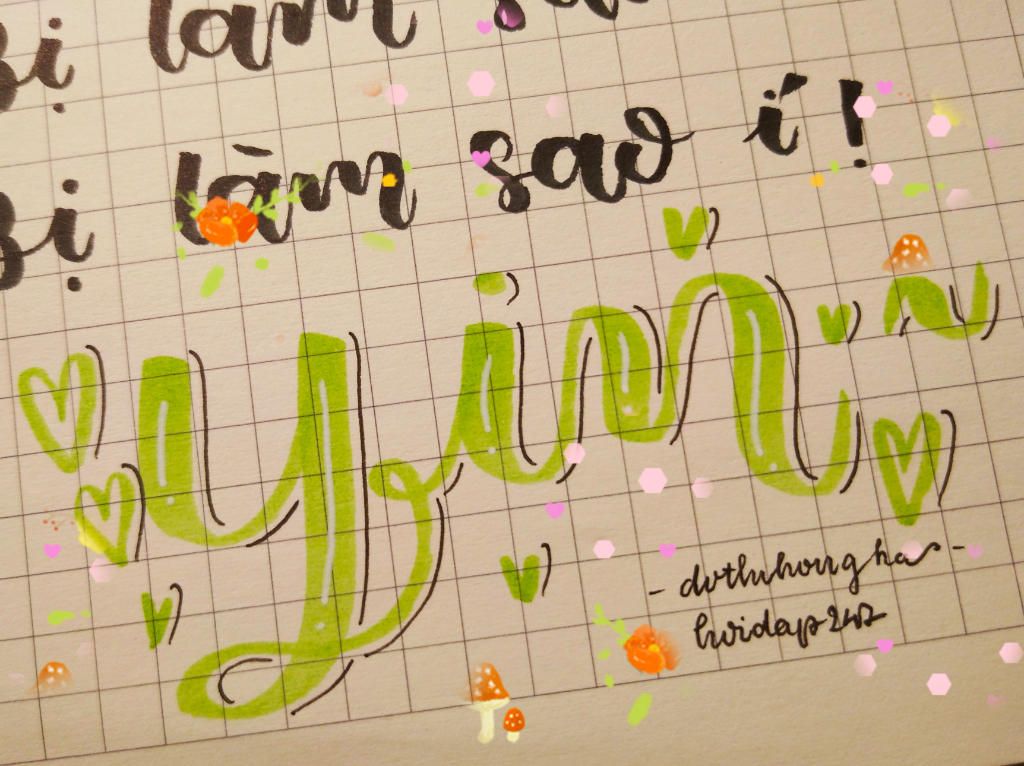 Bị làm sao
Bị làm sao í!
yin ~
- dothuhongha -
hoidap247